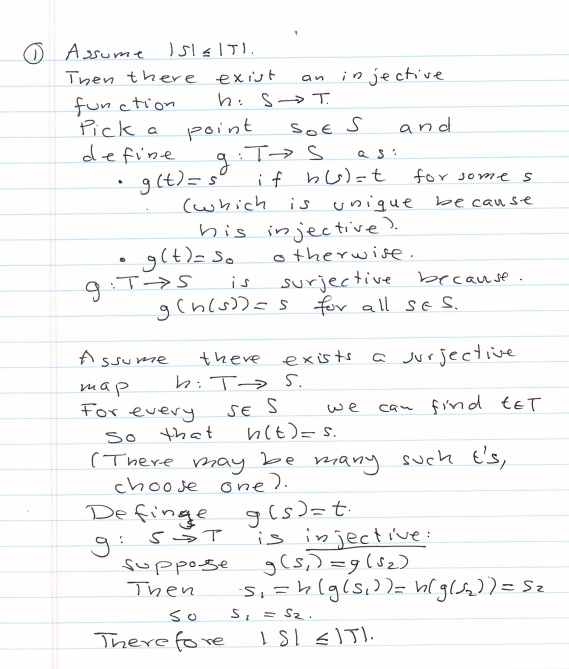 ① Assume |S| ≤ |T|.
Then there exist an injective
function h: S → T.
Pick a point s₀ ∈ S and
define g: T → S as:
• g(t) = s if h(s) = t for some s
(which is unique because
h is injective).
• g(t) = s₀ otherwise.
g: T → S is surjective because.
g(h(s)) = s for all s ∈ S.
Assume there exists a surjective
map h: T → S.
For every s ∈ S we can find t ∈ T
so that h(t) = s.
(There may be many such t's,
choose one).
Define g(s) = t.
g: S → T is injective:
suppose g(s₁) = g(s₂)
Then s₁ = h(g(s₁)) = h(g(s₂)) = s₂
so s₁ = s₂.
Therefore |S| ≤ |T|.